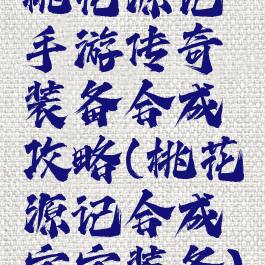 桃花源记
手游传奇
装备合成
攻略(桃花
源记合成
宝宝装备)